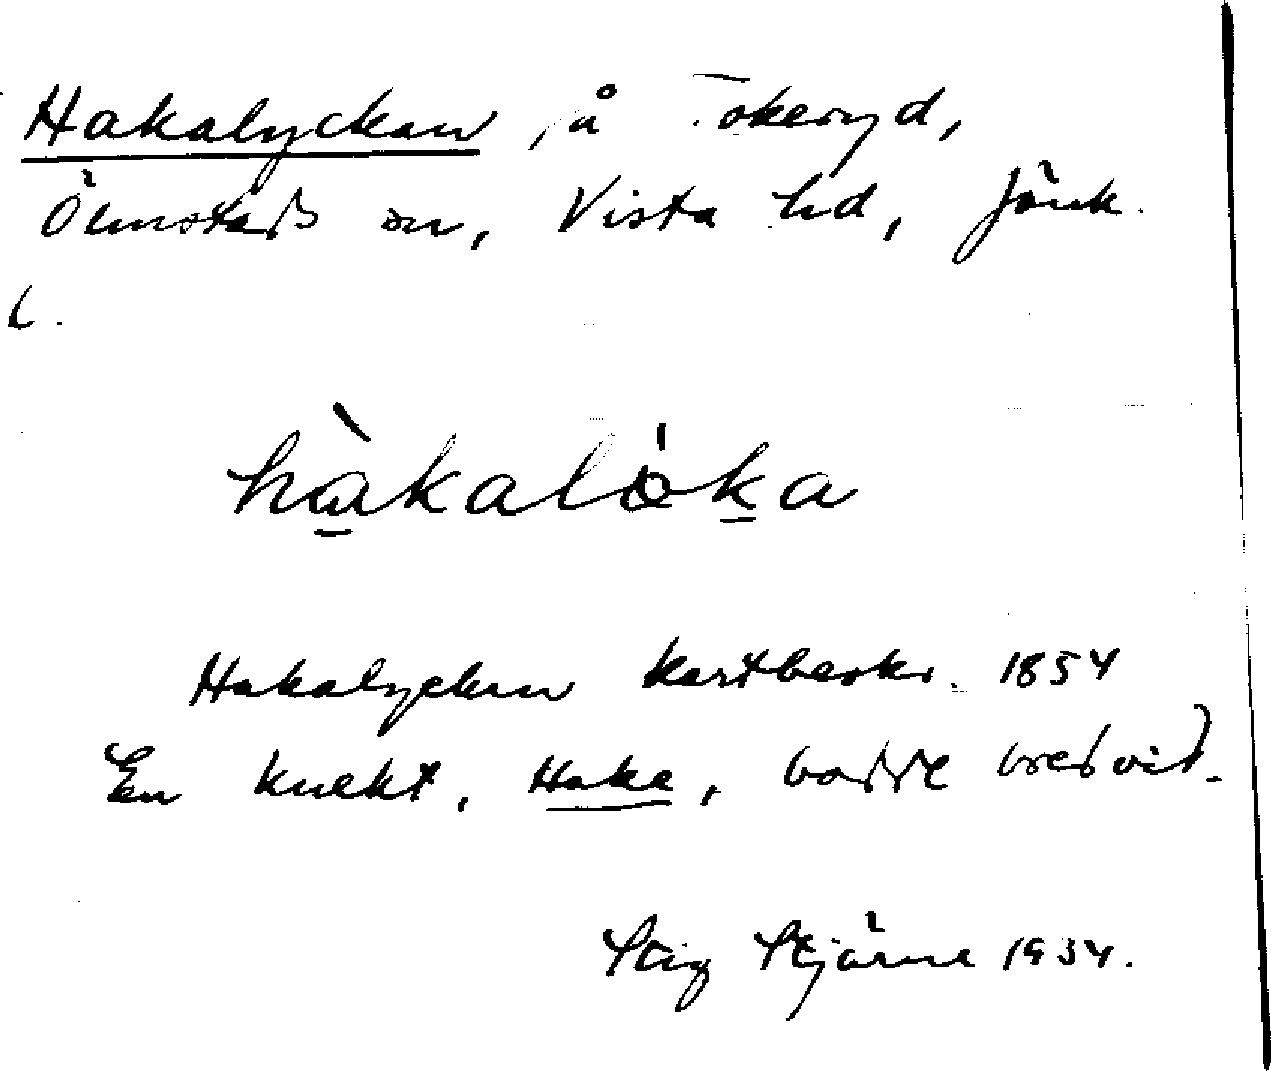 Hakalyckan på Tokeryd,
Ölmstads sn, Vista hd, Jönk.
l.
hàkalòka
Hakalyckan kartbeskr. 1854
En knekt, Hake, bodde bredvid.
Stig Stjärne 1934.